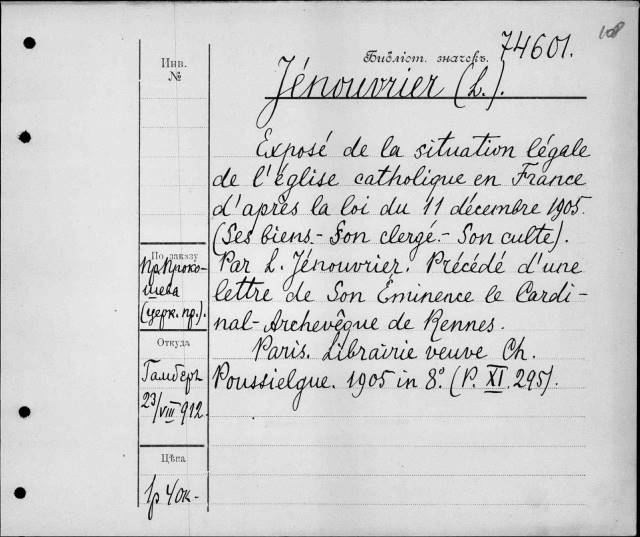 108
Библіот. значекъ. 74601.
Инв.
№
Jénouvrier (L.).
Exposé de la situation légale
de l'église catholique en France
d'après la loi du 11 décembre 1905.
(Ses biens.- Son clergé.- Son culte).
Par L. Jénouvrier. Précédé d'une
lettre de Son Éminence le Cardi-
nal-Archevêque de Rennes.
Paris. Librairie veuve Ch.
Poussielgue. 1905 in 8º. (P. XI. 295).
По заказу
Пр. Проко-
шева
(церк. пр.).
Откуда
Гамберъ
23/VIII 912.
Цѣна
1р 40к-